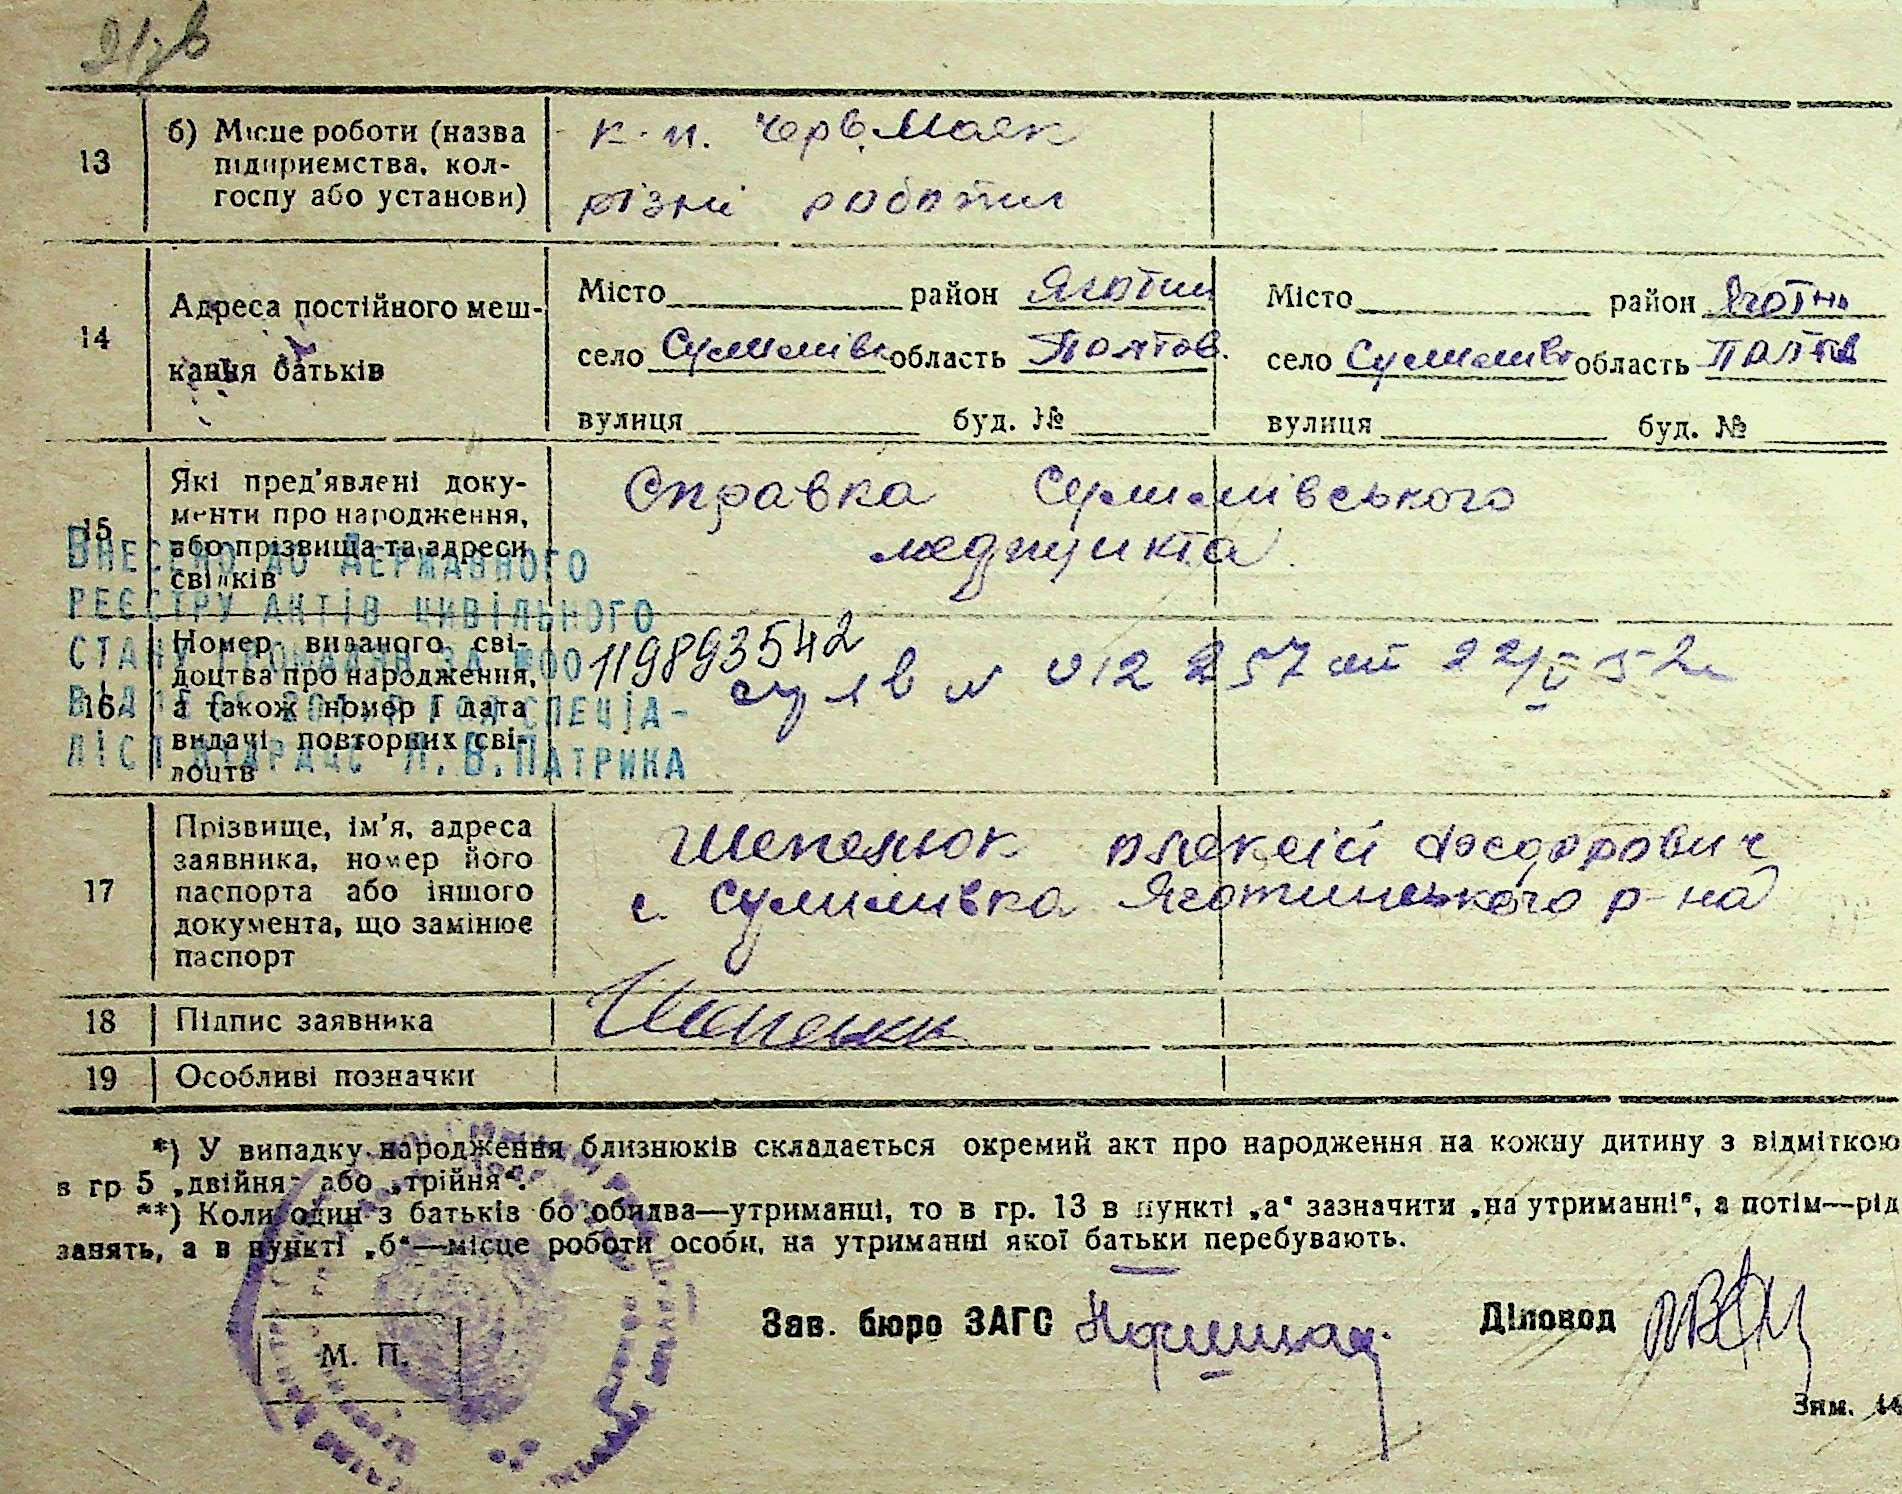 21зв
13
б) Місце роботи (назва
підприємства, кол-
госпу або установи)
к-п. Черв. Маяк
різні роботи
14
Адреса постійного меш-
кання батьків
Місто район Яготин
село Сулимівк область Полтов.
вулиця буд. №
Місто район Яготин
село Сулимівк область Полтав
вулиця буд. №
15
Які пред'явлені доку-
менти про народження,
або прізвища та адреси
свідків
Справка Сулимівського
медпункта
Внесено до Державного
реєстру актів цивільного
стану громадян за №00119893542
спеціа-
ліст Л.В.Патрика
16
Номер виданого сві-
доцтва про народження,
а також номер і дата
видачі повторних сві-
доцтв
012257 22/V 52
17
Прізвище, ім'я, адреса
заявника, номер його
паспорта або іншого
документа, що замінює
паспорт
Шепелюк Олексій Федорович
с. Сулимивка Яготинського р-на
18
Підпис заявника
19
Особливі позначки
*) У випадку народження близнюків складається окремий акт про народження на кожну дитину з відміткою
в гр 5 „двійня" або „трійня".
**) Коли один з батьків бо обидва—утриманці, то в гр. 13 в пункті „а" зазначити „на утриманні", а потім—рід
занять, а в пункті „б"—місце роботи особи, на утриманні якої батьки перебувають.
М. П.
Зав. бюро ЗАГС
Діловод
Зам.